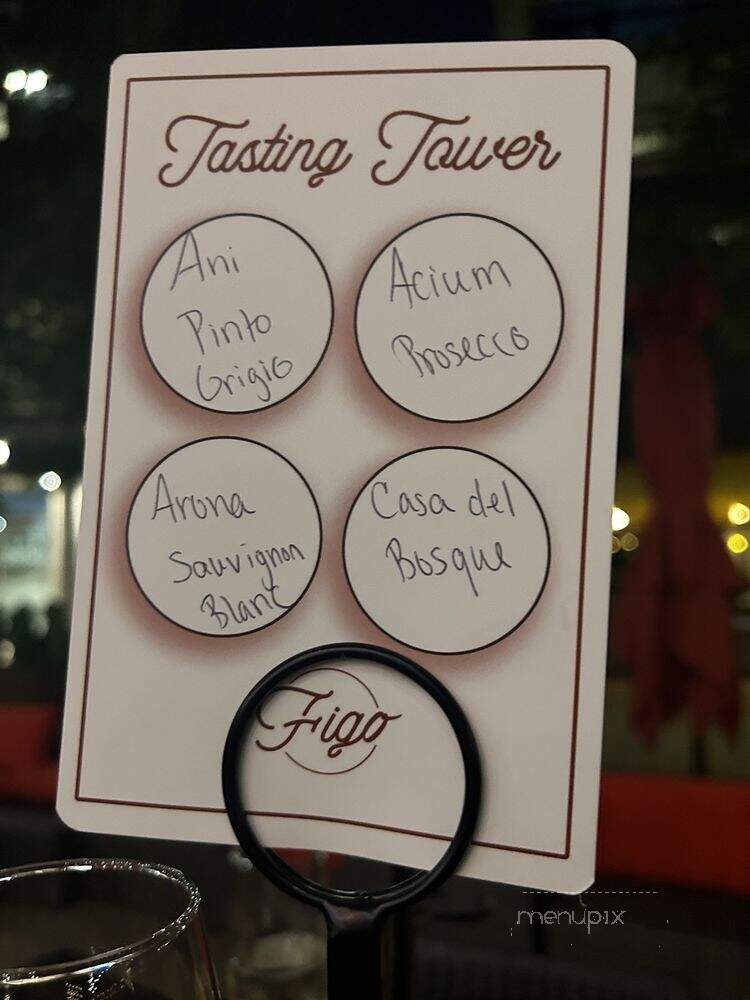 Tasting Tower
Ani
Pinto
Grigio
Acium
Prosecco
Arona
Sauvignon
Blanc
Casa del
Bosque
Figo
menupix